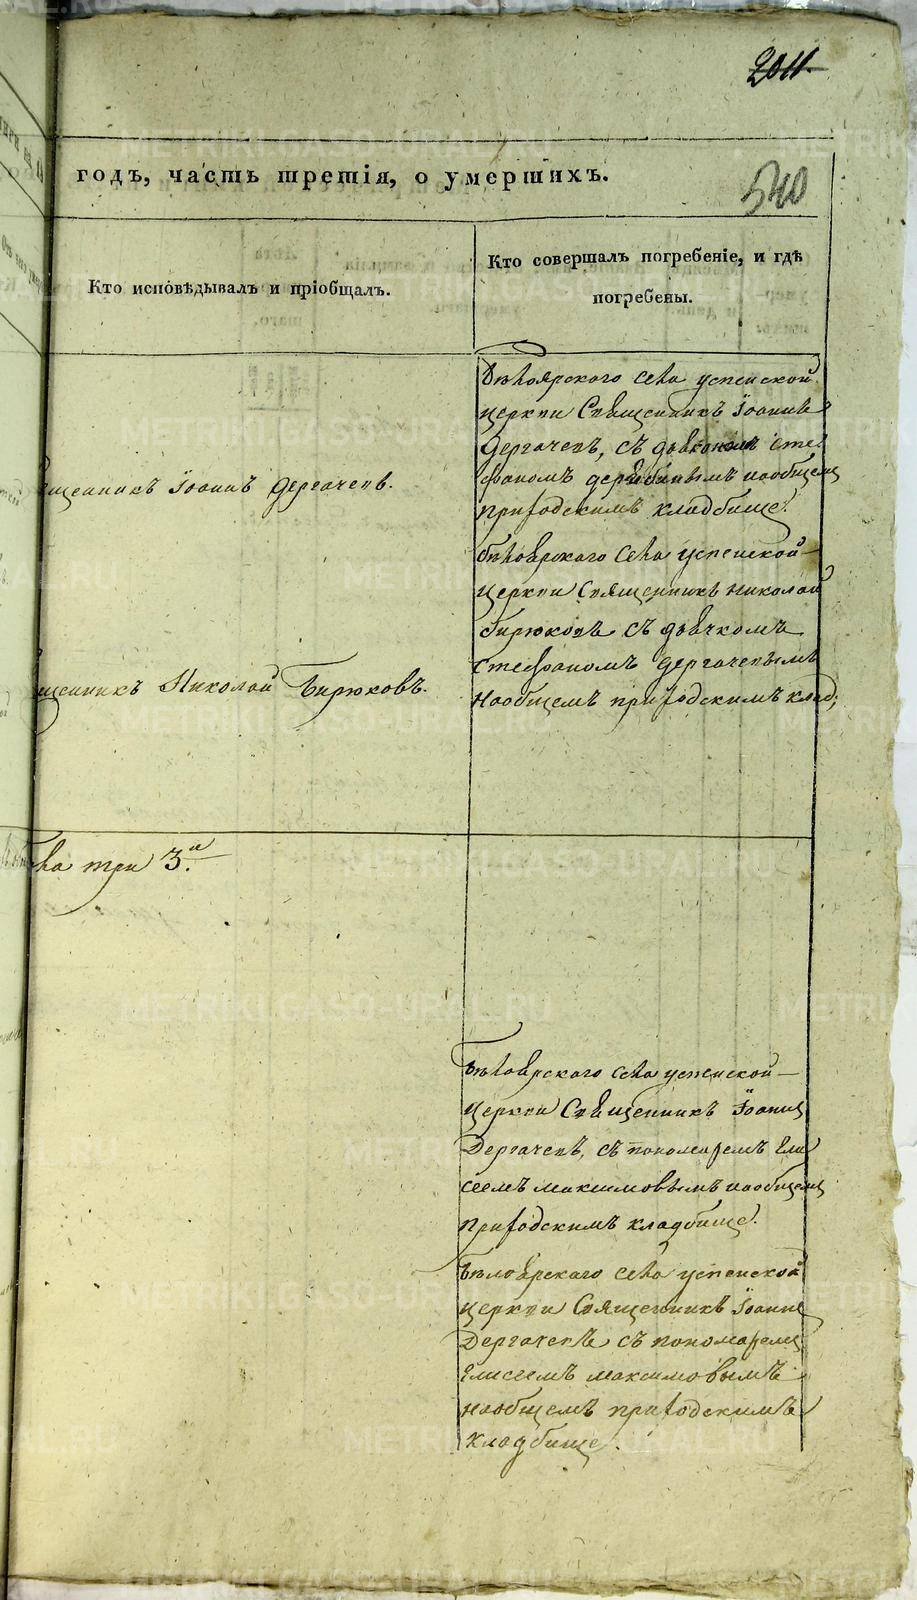 2011
540
годъ, часть третія, о умершихъ.
Кто исповѣдывалъ и пріобщалъ.
Кто совершалъ погребеніе, и гдѣ
погребены.
Бѣлоярского села успенской
церкви Священникъ Іоаннъ
Дергачевъ, съ дьякономъ Сте
фаномъ наобщемъ
приходскимъ кладбище.
щенникъ Іоаннъ Дергачевъ.
бѣлоярского села успенской
церкви священникъ николай
бирюковъ съ дьячкомъ
стефаномъ дергачевымъ
наобщемъ приходскимъ клад;
щенникъ Николай Бирюковъ.
ва три 3.и
Бѣлоярского села успенской
церкви Священникъ Іоаннъ
Дергачевъ, съ пономаремъ Ели
сеемъ максимовымъ наобщемъ
приходскимъ кладбище.
Бѣлоярского села успенской
церкви Священникъ Іоаннъ
Дергачевъ съ пономаремъ
Елисеемъ максимовымъ
наобщемъ приходскимъ
кладбище.
METRIKI.GASO-URAL.RU